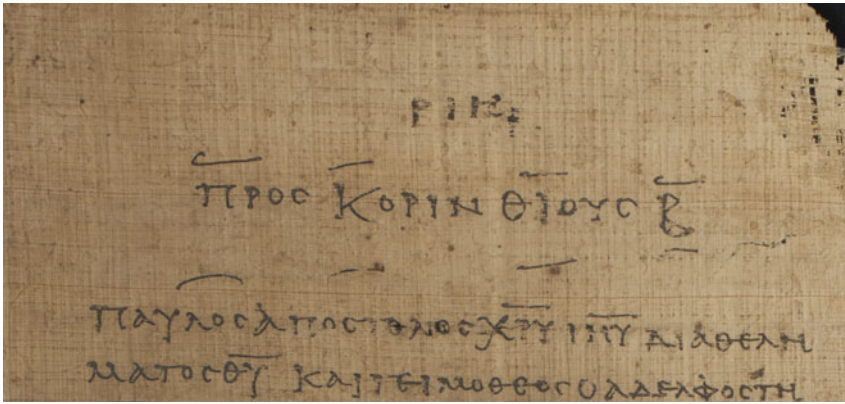 ΡΙΗ
ΠΡΟΣ ΚΟΡΙΝΘΙΟΥΣ Β̅
ΠΑΥΛΟΣ ΑΠΟΣΤΟΛΟΣ Χ̅Ρ̅Υ̅ Ι̅Η̅Υ̅ ΔΙΑ ΘΕΛΗ
ΜΑΤΟΣ Θ̅Υ̅ ΚΑΙ ΤΕΙΜΟΘΕΟΣ Ο ΑΔΕΛΦΟΣ ΤΗ